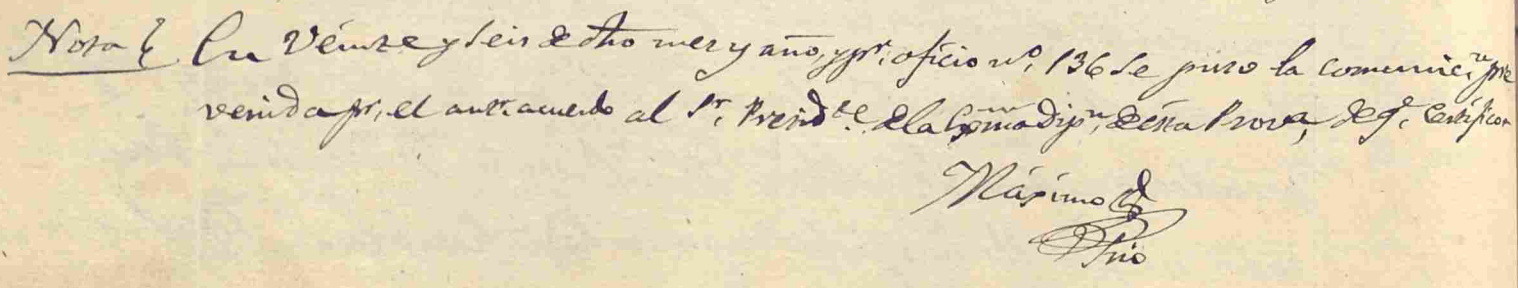 Nota { En Veinte y Seis de dho mes y año, y pr. oficio no. 136 se puso la comunicn. pre
venida pr. el antr. acuerdo al Sr. Presidte. de la Dipn. de ésta Prova, de q. certifico=
Máximo
Srio